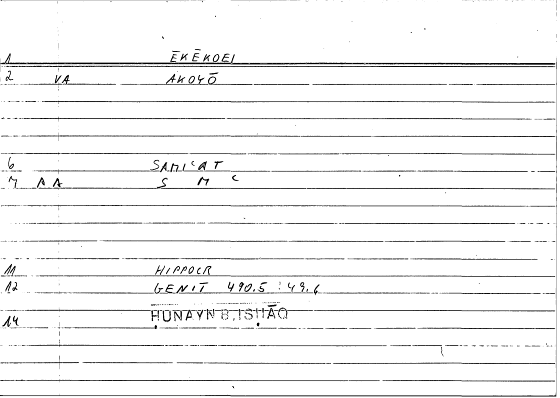 1 ĒKĒKOEI
2 VA AKOYŌ
6 SAMIʿAT
M AA S M ʿ
11 HIPPOCR
12 GENIT 490.5 : 49.6
14 ḤUNAYN B. ISḤĀQ